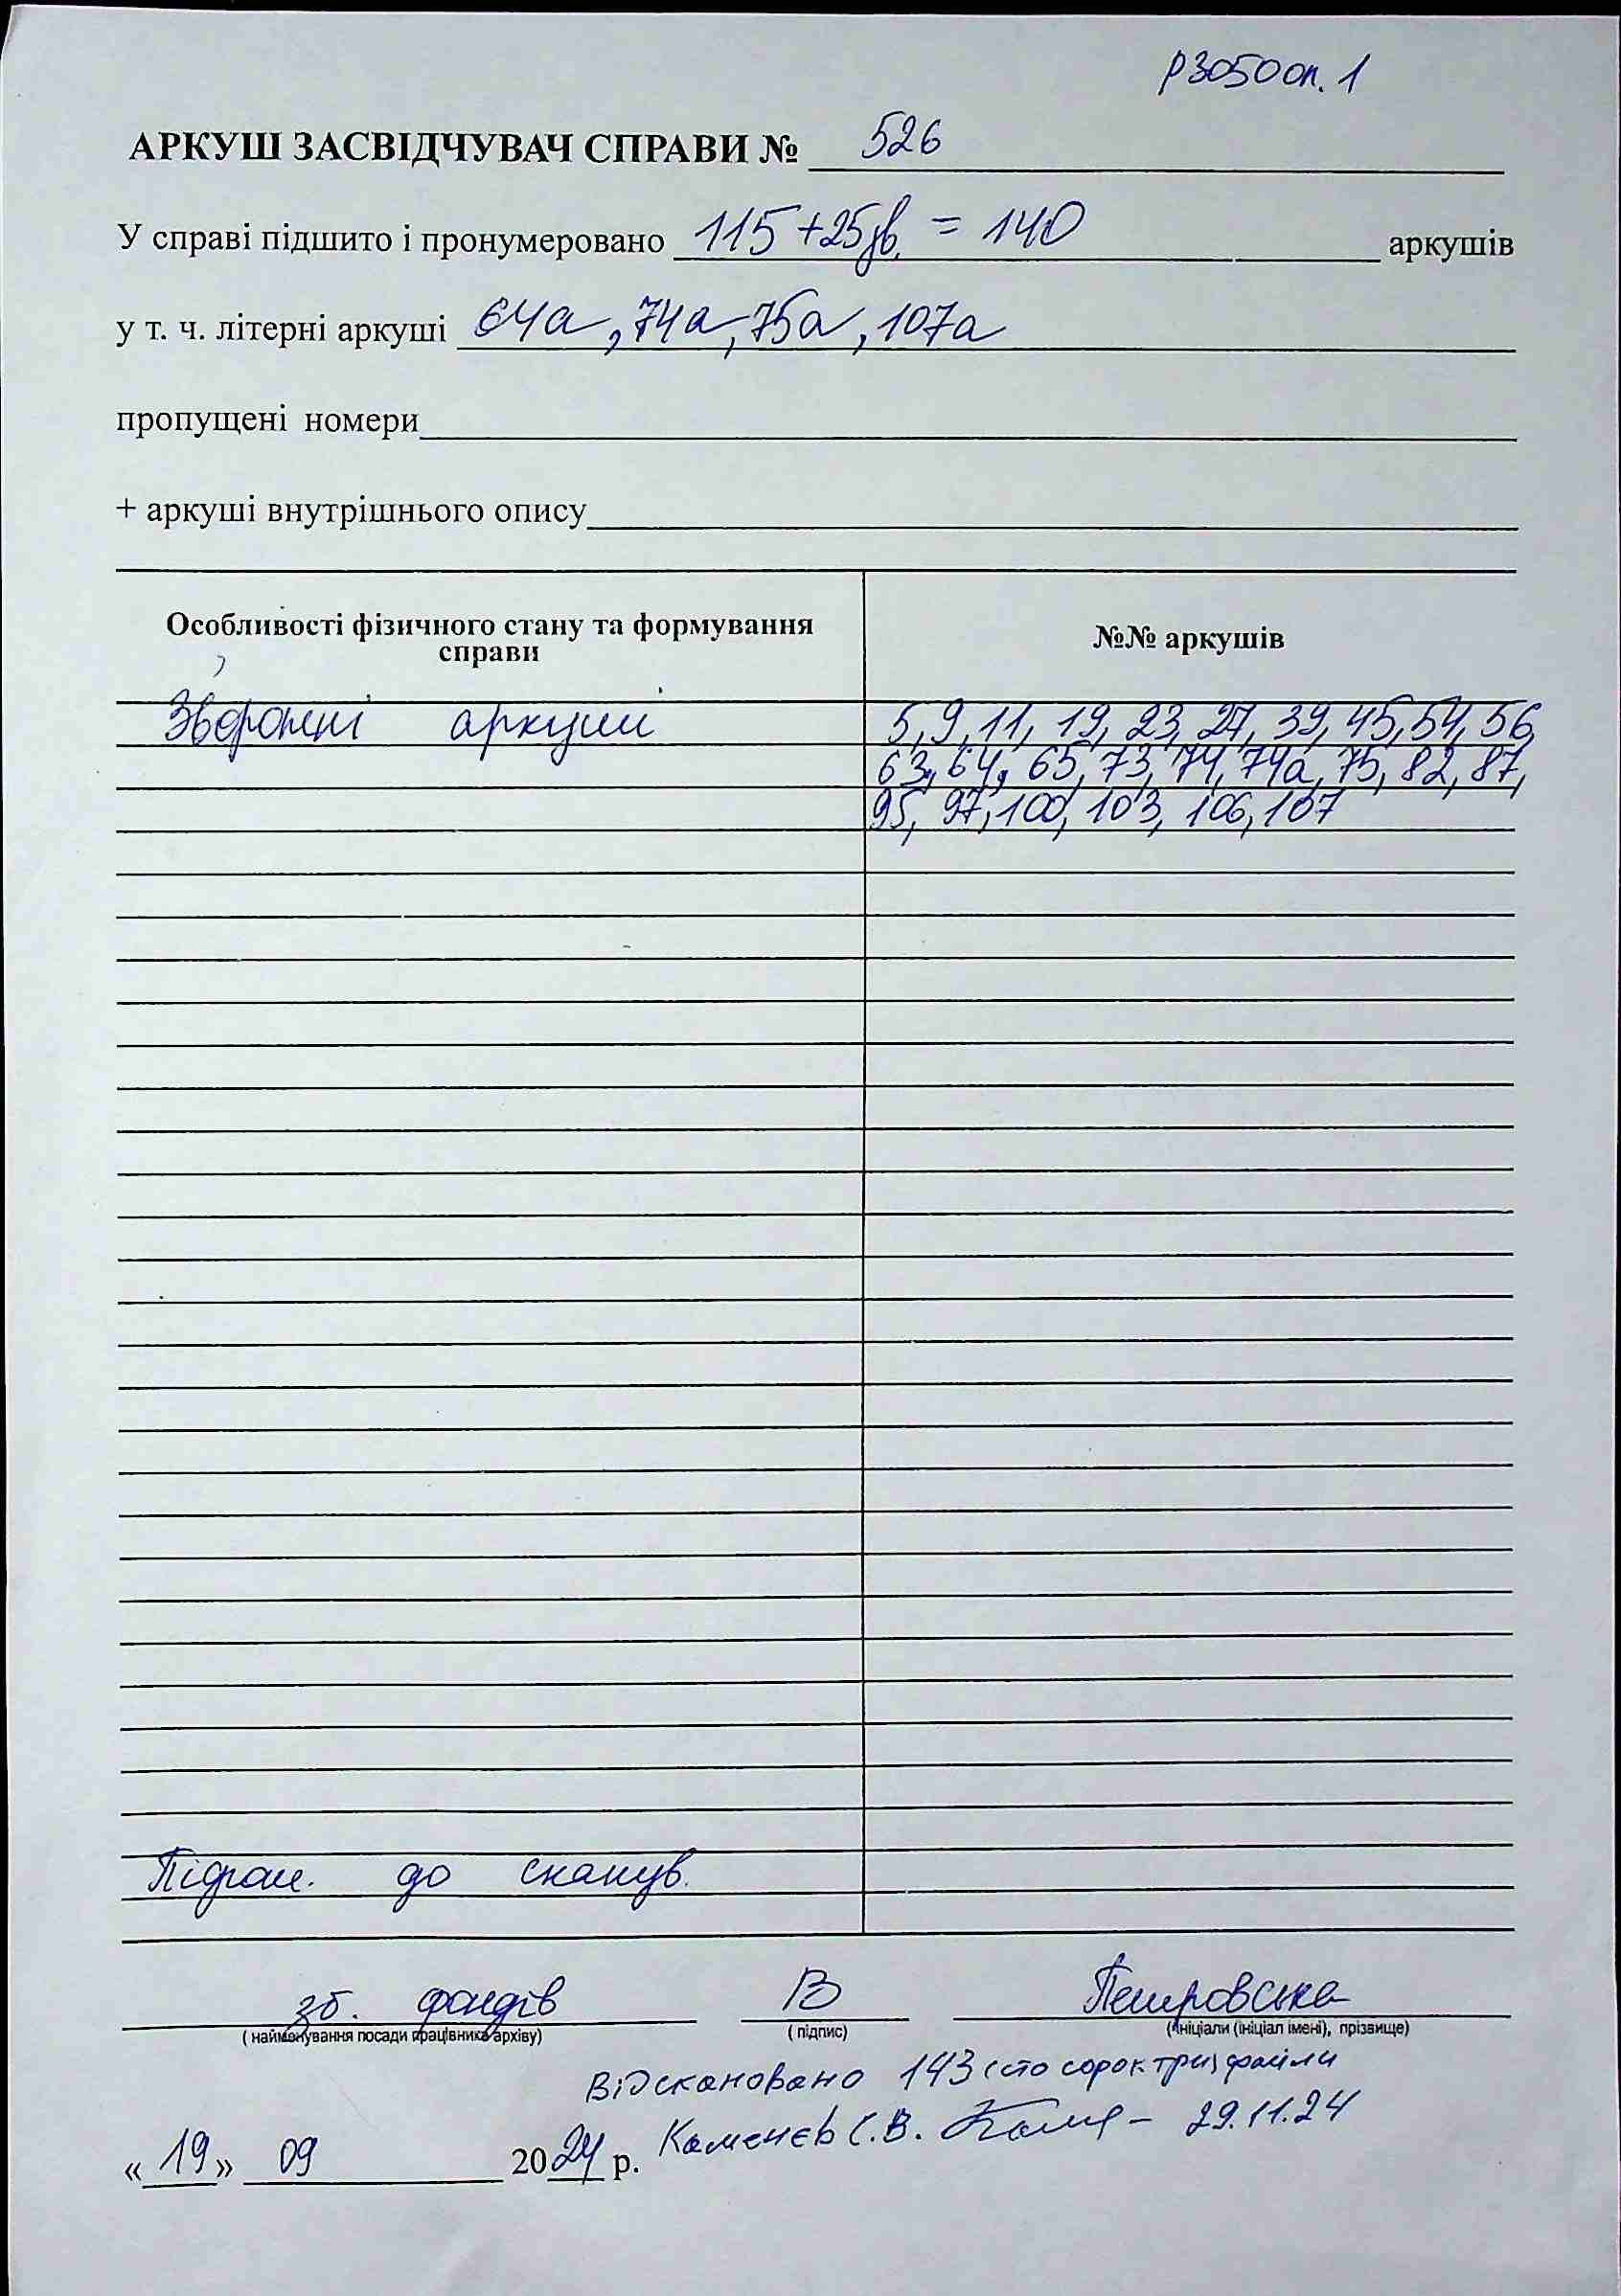 Р3050 оп. 1
АРКУШ ЗАСВІДЧУВАЧ СПРАВИ № 526
У справі підшито і пронумеровано 115 + 25 зв. = 140 аркушів
у т. ч. літерні аркуші 64а, 74а, 75а, 107а
пропущені номери
+ аркуші внутрішнього опису
Особливості фізичного стану та формування
справи
№№ аркушів
Зворотні аркуші 5, 9, 11, 19, 23, 27, 39, 45, 54, 56,
63, 64, 65, 73, 74, 74а, 75, 82, 87,
95, 97, 100, 103, 106, 107
до сканув.
зб. фондів В Петровська
( найменування посади працівника архіву) ( підпис) (ініціали (ініціал імені), прізвище)
Відскановано 143 (сто сорок три) файли
Каменєв С.В. 29.11.24
« 19 » 09 2024 р.